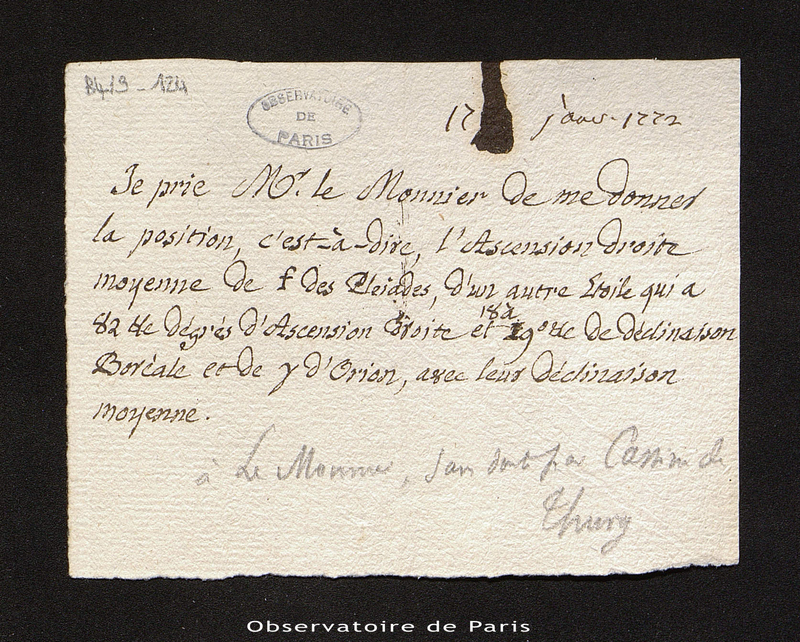 B4.13 - 124
OBSERVATOIRE
DE
PARIS
17 janv. 1772
Je prie Mr. le Monnier de me donner
la position, c'est-à-dire, l'Ascension droite
moyenne de f des Pleiades, d'un autre Etoile qui a
82 &c dégrés d'Ascension Droite et 18 à 19° &c de declinaison
Boréale et de γ d'Orion, avec leur Déclinaison
moyenne.
à Le Monnier, sans doute par Cassini de
Thury
Observatoire de Paris